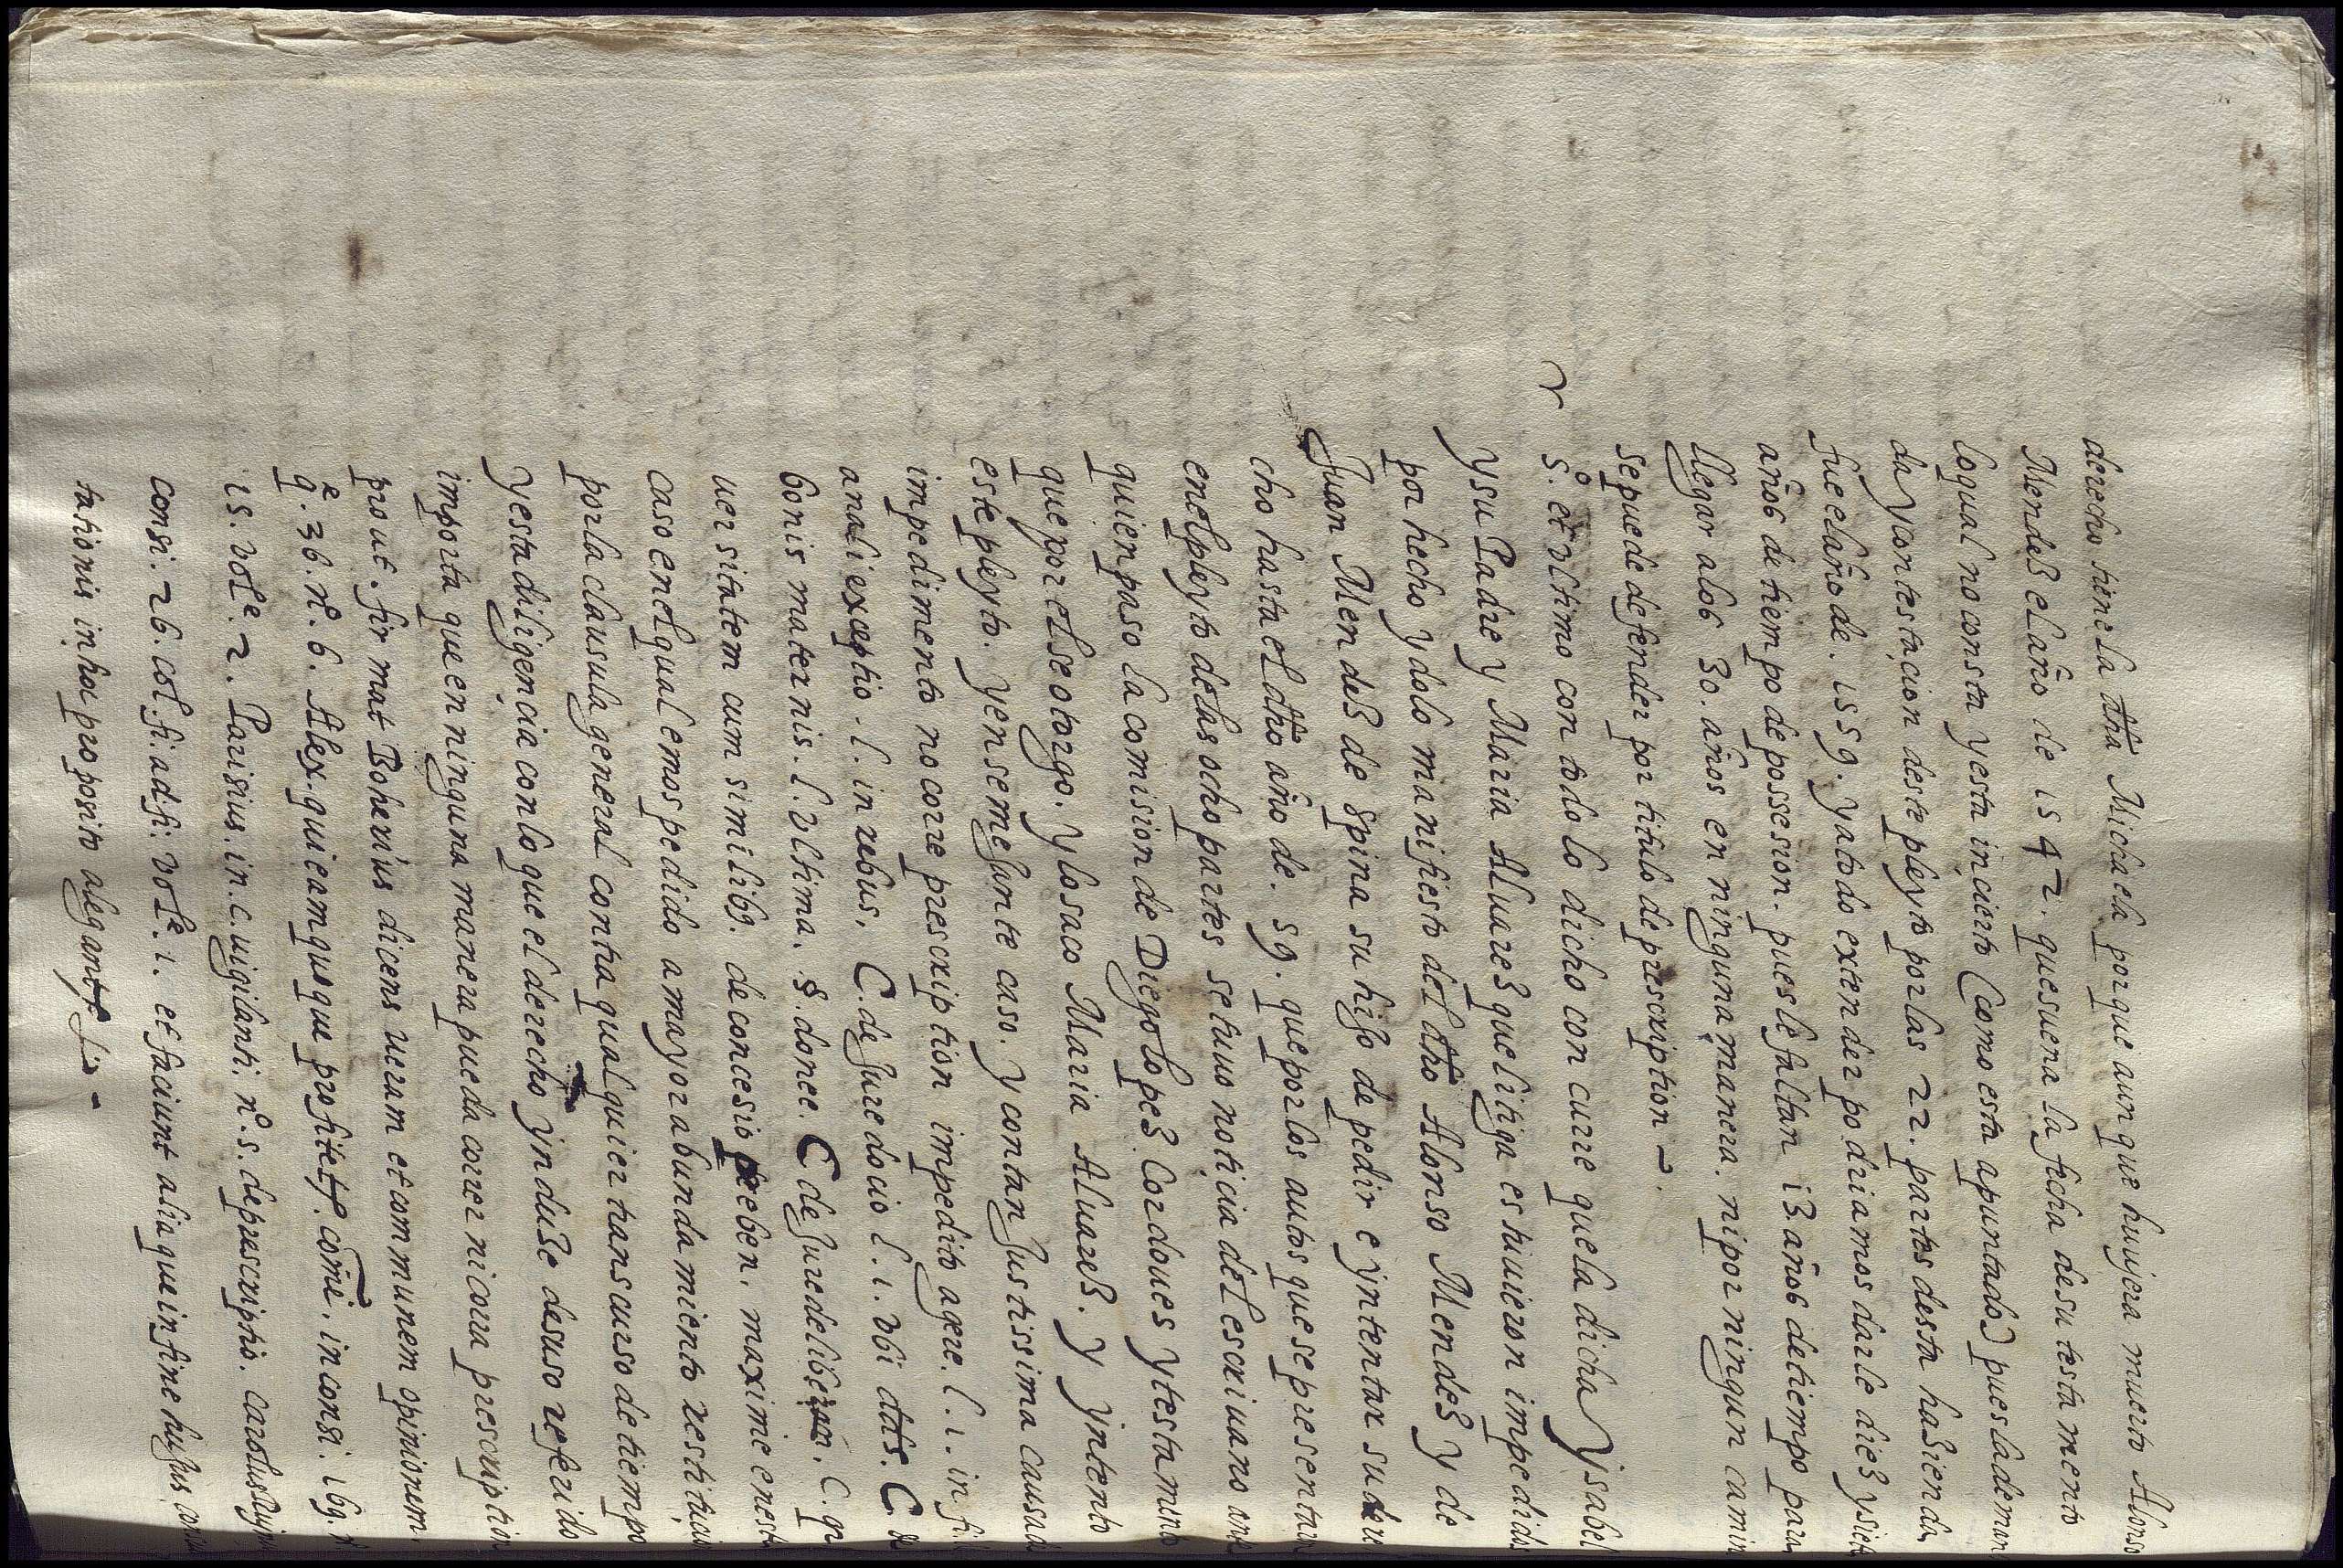 derecho tiene la dha Michaela porque aunque huuiera muerto Alonso
Mendes el año de 1542. que suena la fecha de su testamento
lo qual no consta y esta incierto (como esta apuntado) pues la deman
da y contestacion deste pleyto por las 22. partes desta hasienda
fue el año de. 1559. y a todo extender podriamos darle dies y siete
años de tiempo de possesion. pues le faltan 13 años de tiempo para
llegar a los 30. años en ninguna manera. ni por ningun camin
se puede defender por titulo de prescription ~.
5.º et vltimo con todo lo dicho concurre que la dicha ysabel
y su Padre y Maria Aluares que litiga estuuieron impedidos
por hecho y dolo manifiesto del dho Alonso Mendes y de
Juan Mendes de Spina su hijo de pedir e yntentar su
cho hasta el dho año de. 59. que por los autos que se presentaron
en el pleyto de las ocho partes se tuuo noticia del escriuano ante
quien paso la comision de Diego Lopes Cordoues y testamento
que por el se otorgo. y lo saco Maria Aluares. y yntento
este pleyto. y en semejante caso. y con tan justissima causa de
impedimento no corre prescription impedito agere. l. 1. in fi.
annali exceptio. l. in rebus. C. de jure docio l. 1. vbi dds. C. de
bonis maternis. l. vltima. §. donec. C de jure deliberan. C. q
uersitatem cum similibꝫ. de concesio preben. maxime en este
caso en el qual emos pedido a mayor abundamiento restitucion
por la clausula general contra qualquier transcurso de tiempo
y esta diligencia con lo que el derecho ynduse desuso referido
importa que en ninguna manera pueda correr ni corra prescription
prout. firmat Boherius dicens veram et communem opinionem.
q. 36. nº. 6. Alex. qui eam queque profitetr comẽ. in consi. 169.
15. vole. 2. Parisius. in. c. uigilanti. nº. 5. de prescriptio. carolus
consi. 26. col. fi. ad fi. vole. 1. et faciunt alia que in fine hujus
tationis in hoc proposito alegantr